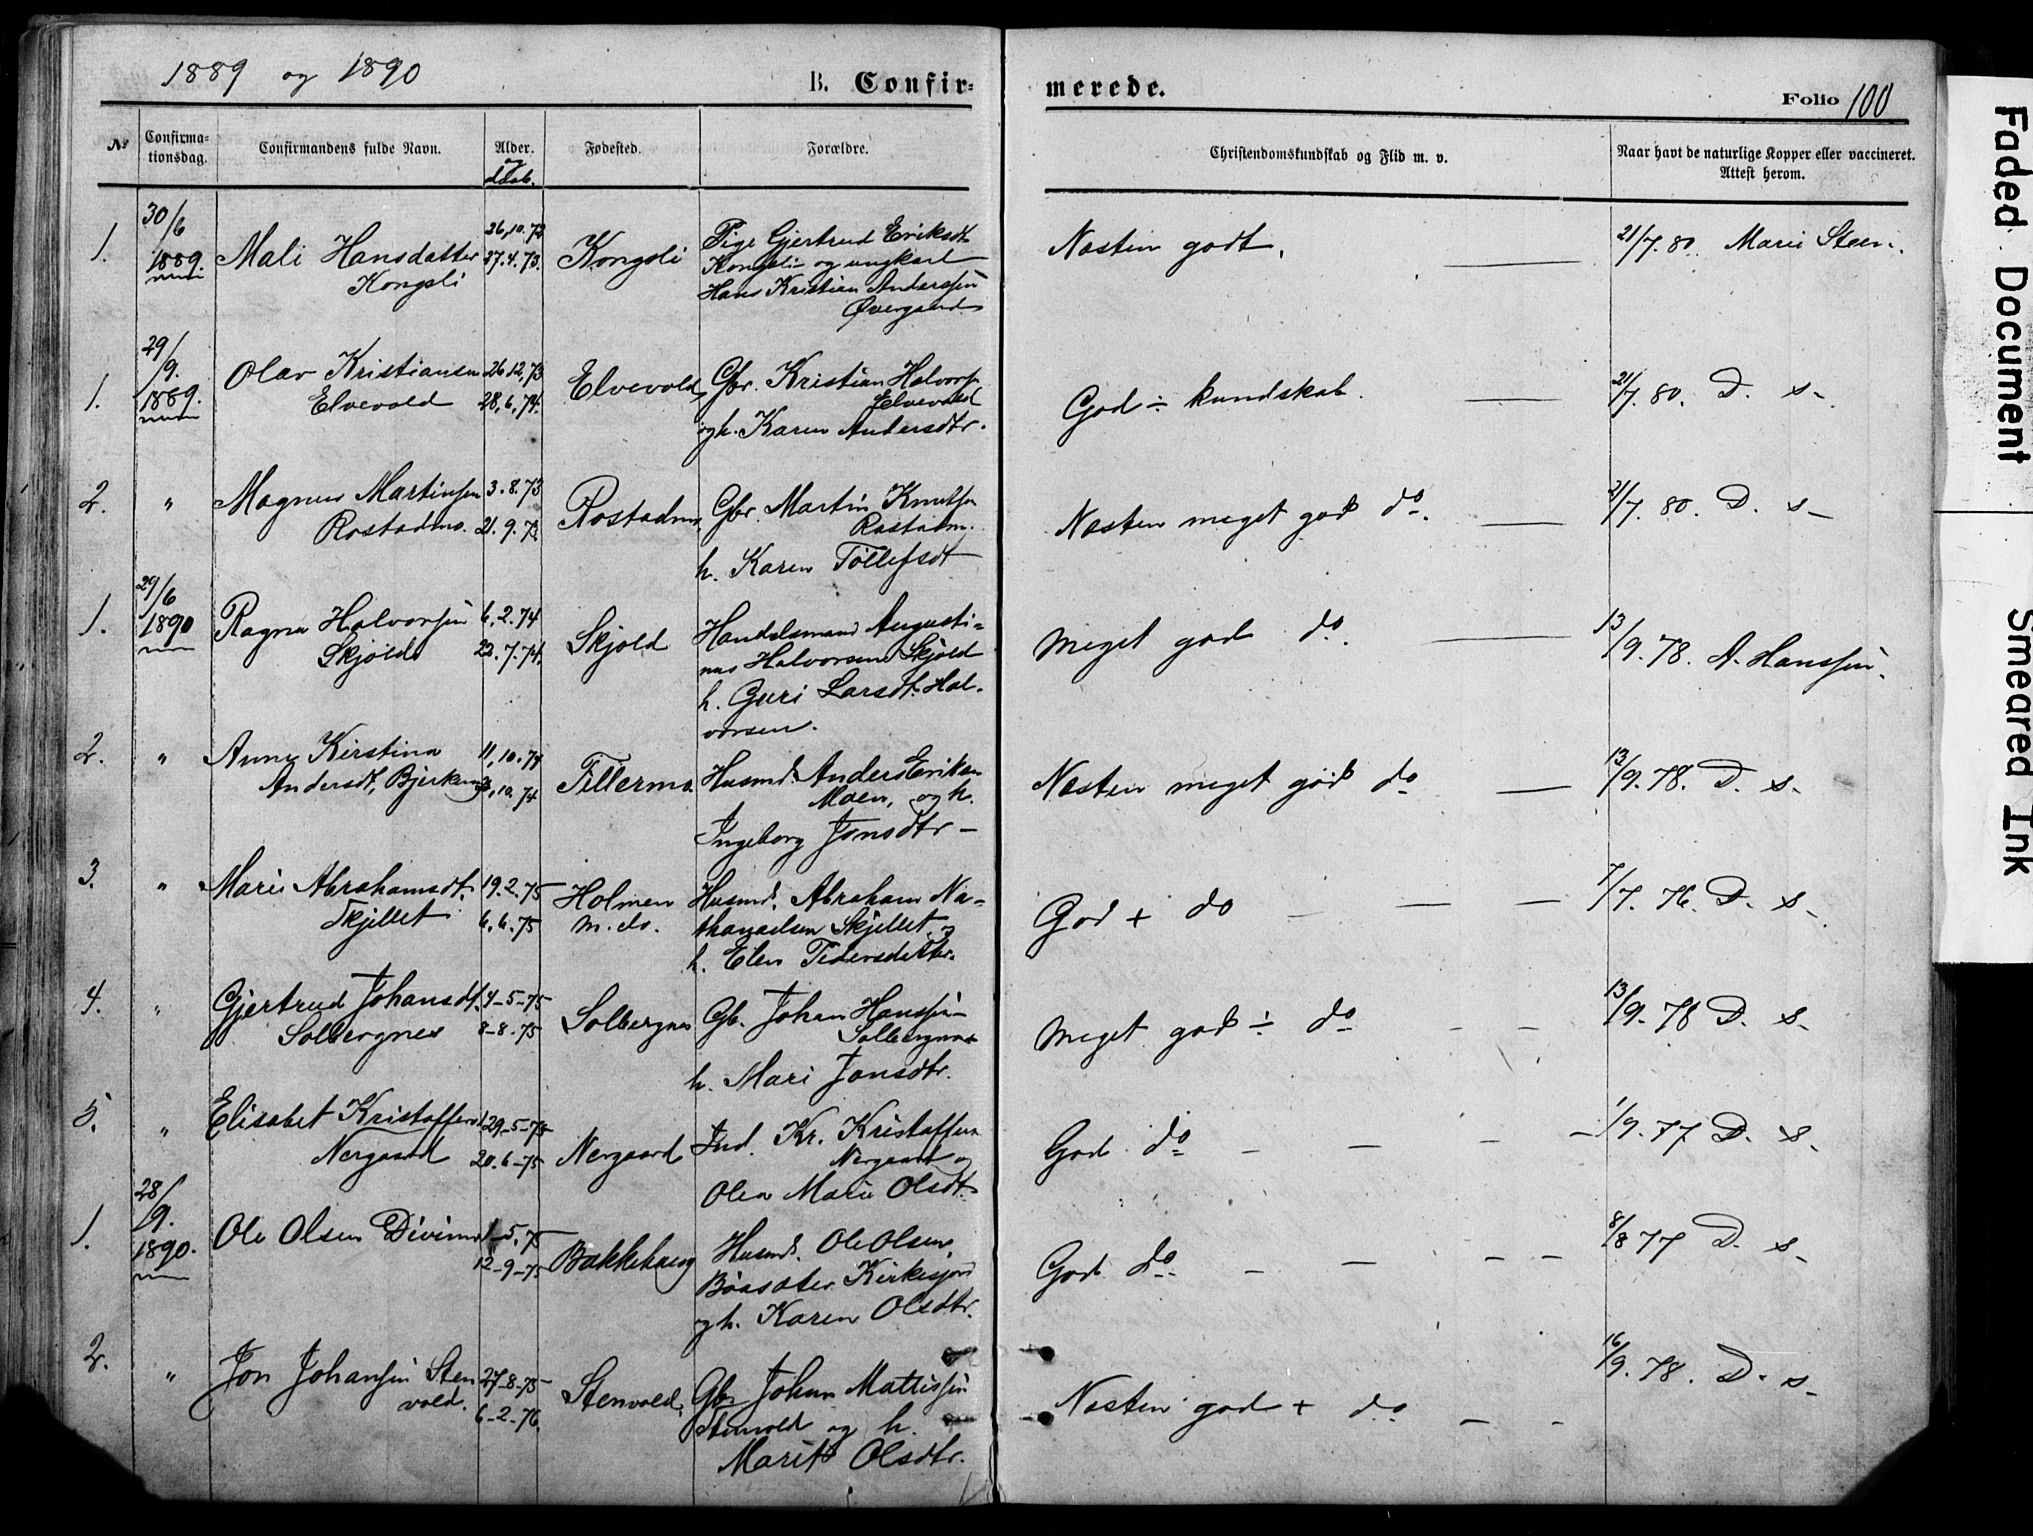 1889 og 1890
B. Confir-
merede.
Folio 100
No
Confirma-
tionsdag.
Confirmandens fulde Navn.
Alder.
og
daab.
Fødested.
Forældre.
Christendomskundskab og Flid m. v.
Naar havt de naturlige Kopper eller vaccineret.
Attest herom.
1. 30/6 1889 Mali Hansdatter
Kongsli
26,10.72
27.4.73.
Kongsli
Pige Gjertrud Eriksdt
Kongsli og ungkarl
Hans Kristian Anderssen
Øvergaard
Næsten godt.
21/7.80. Marie Steen.
1. 29/9. 1889. Olav Kristiansen
Elvevold
26.12.73
28.6.74.
Elvevold
Gbr. Kristian Halvors.
Elvevold
og h. Karen Andersdtr.
God ÷ kundskab.
21/7.80. D. s.
2. " Magnus Martinsen
Rostadmo.
3.8.73
21.9.73
Rostadmo
Gbr. Martin Knutsen
Rostadm.
h. Karen Tollefsdt
Næsten meget god do.
21/7.80. D. s.
1. 29/6 1890 Ragna Halvorsen
Skjold
6.2.74
22.7.74.
Skjold
Handelsmand Augusti-
nus Halvorsen Skjold
h. Guri Larsdt. Hal-
vorsen.
Meget god do.
13/9.78. A. Hanssen.
2. " Anne Kirstina
Andersdt, Bjerkeng
11,10.74
,10.74
Fillermo.
Husmd. Anders Eriksen
Moen, og h.
Ingeborg Jonsdtr
Næsten meget god do
13/9.78. D. s.
3. " Marie Abrahamsdt.
Skjellet
19.2.75
6.6.75
Holmen
m. do.
Husmd. Abraham Na-
thanaelsen Skjellet og
h. Elen Pedersdatter.
God + do
7/7.76. D. s.
4. " Gjertrud Johansdt.
Solbergnes
4-5-75
8-8-75
Solbergnes
Gb. Johan Hanssen
Solbergnes
h. Mari Jonsdtr.
Meget god ÷ do
13/9.78 D. s.
5. " Elisabet Kristoffersd
Nergaard
29-5-75
20.6-75
Nergaard
Ind. Kr. Kristoffersen
Nergaard og
Olea Marie Olsdt.
God do
1/9.77 D. s.
1. 28/9. 1890. Ole Olsen Divimo
1-5.75
12-9-75
Bakkehaug
Husmd. Ole Olsen,
Kirkesjord
og h. Karen Olsdtr.
God do
8/8 77 D. s.
2. " Jon Johansen Sten
vold.
27-8-75
6-2-76.
Stenvold.
Gbr Johan Mattissen
Stenvold og h.
Marit Olsdtr.
Næsten god + do
16/9.78. D. s.
Faded Document
Smeared Ink